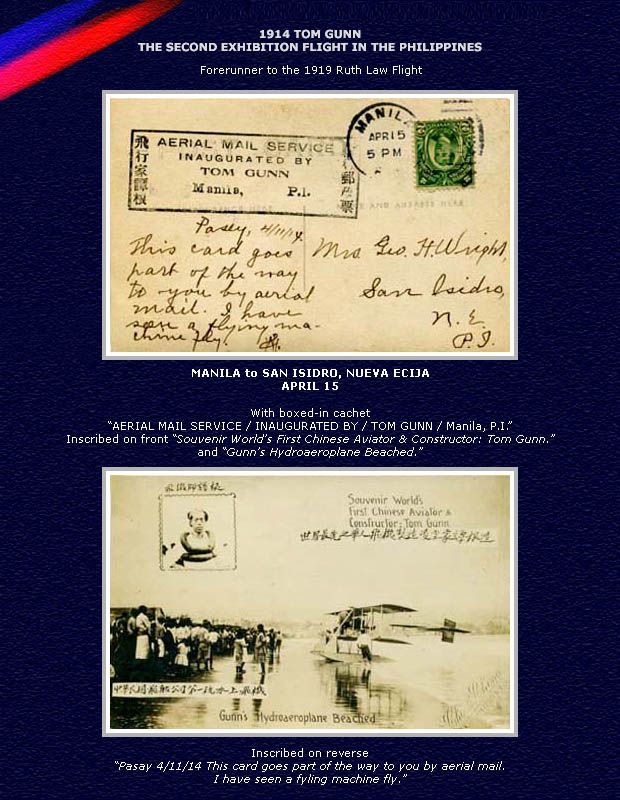 1914 TOM GUNN
THE SECOND EXHIBITION FLIGHT IN THE PHILIPPINES
Forerunner to the 1919 Ruth Law Flight
MANILA
APR 15
5 PM
AERIAL MAIL SERVICE
INAUGURATED BY
TOM GUNN
Manila, P.I.
飛行家譚根
郵票
AND ADDRESS HERE
Pasey, 4/11/14
This card goes
part of the way
to you by aerial
mail. I have
seen a flying ma-
chine fly.
Mrs Geo. H. Wright,
San Isidro,
N. E.
P. I.
MANILA to SAN ISIDRO, NUEVA ECIJA
APRIL 15
With boxed-in cachet
“AERIAL MAIL SERVICE / INAUGURATED BY / TOM GUNN / Manila, P.I.”
Inscribed on front “Souvenir World’s First Chinese Aviator & Constructor: Tom Gunn.”
and “Gunn’s Hydroaeroplane Beached.”
Souvenir World's
First Chinese Aviator &
Constructor: Tom Gunn
中華民國飛船公司第一號水上飛機
Gunn's Hydroaeroplane Beached
Inscribed on reverse
“Pasay 4/11/14 This card goes part of the way to you by aerial mail.
I have seen a fyling machine fly.”